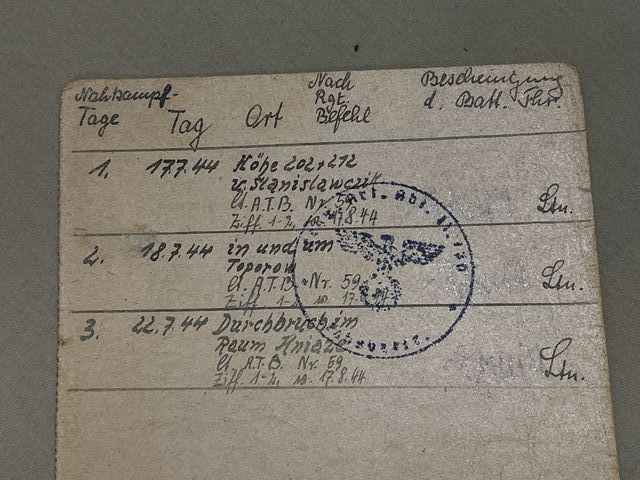 Nahkampf- Tage
Tag
Ort
Nach Rgt. Befehl
Bescheinigung d. Batt. Fhr.
1. 17.7.44 Höhe 202 + 212
u. Stanislawczik
lt. A.T.B. Nr. 59
Ziff. 1-2, v. 17.8.44
Ltn.
2. 18.7.44 in und um
Toporow
lt. A.T.B. Nr. 59
Ziff. 1-2, v. 17.8.44
Ltn.
3. 22.7.44 Durchbruch im
Raum Kniaze
lt. A.T.B. Nr. 59
Ziff. 1-2, v. 17.8.44
Ltn.
Art. Abt.